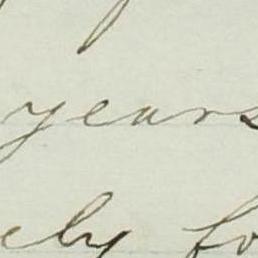 years
ely fo